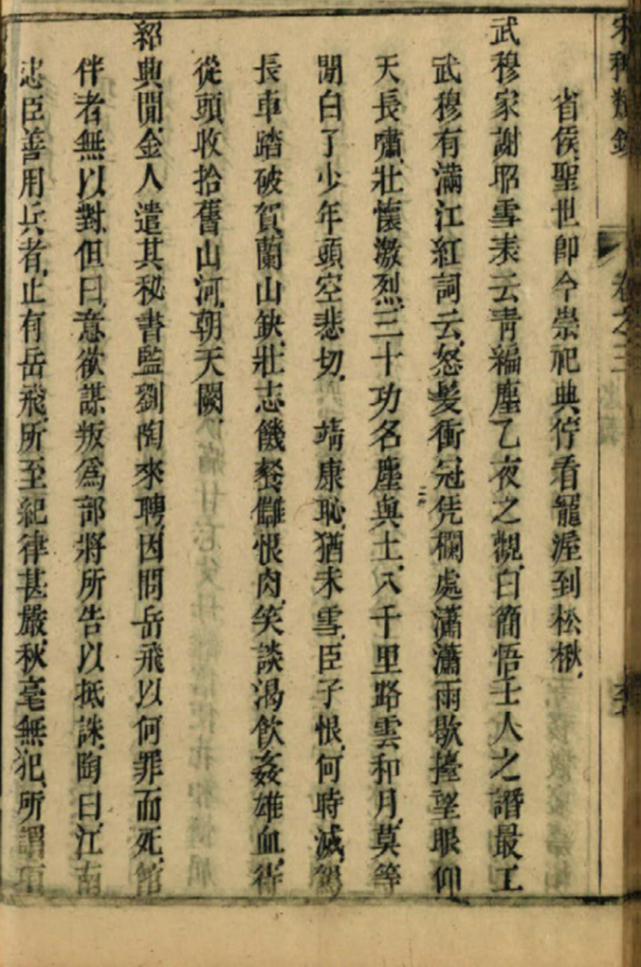 宋稗類鈔 卷之三
省侯聖世卽今崇祀典佇看寵渥到松楸
武穆家謝昭雪表云靑編塵乙夜之觀白簡悟壬人之譖最工
武穆有滿江紅詞云怒髮衝冠凭欄處瀟瀟雨歇擡望眼仰
天長嘯壯懷激烈三十功名塵與土八千里路雲和月莫等
閒白了少年頭空悲切靖康恥猶未雪臣子恨何時滅駕
長車踏破賀蘭山缺壯志饑餐讎恨肉笑談渴飮姦雄血待
從頭收拾舊山河朝天闕
紹興閒金人遣其秘書監劉陶來聘因問岳飛以何罪而死館
伴者無以對但曰意欲謀叛爲部將所告以抵誅陶曰江南
忠臣善用兵者止有岳飛所至紀律甚嚴秋毫無犯所謂項